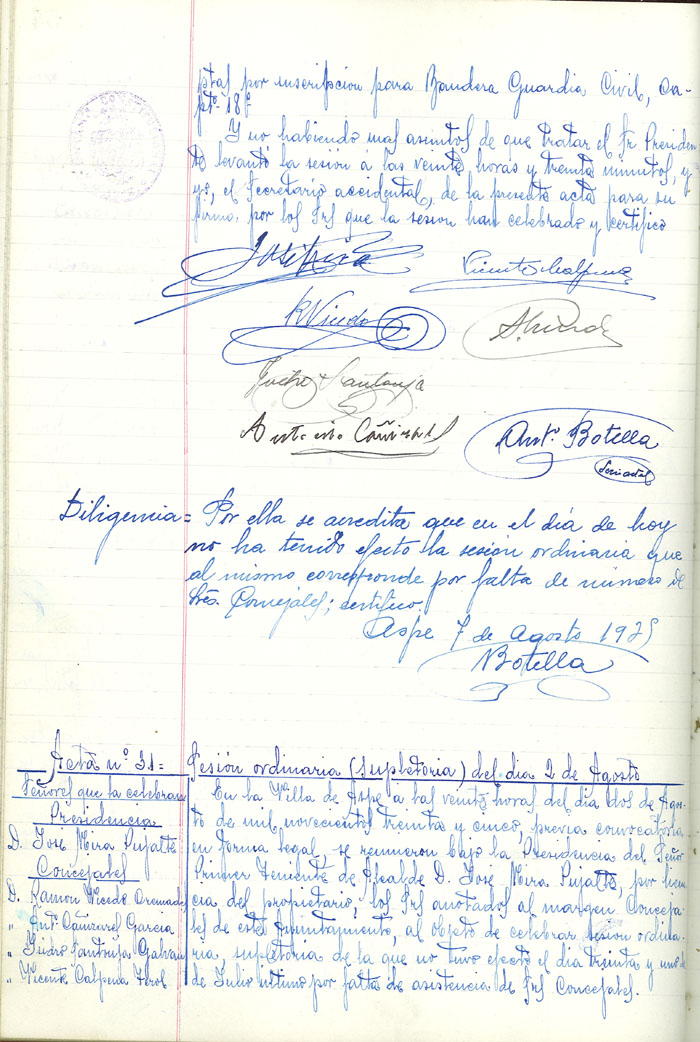 ptas por suscripcion para Bandera Guardia Civil, ca-
pto. 18º
Y no habiendo mas asuntos de que tratar el Sr Presiden
te levantó la sesion a las veinte horas y treinta minutos, y
yo, el Secretario accidental, de la presente acta para su
firma, por los Srs que la sesion han celebrado y certifico
José Mira
Vicente Calpena
R Vicedo
Isidro Santonja
Antonio Cañizares
Antº Botella
Diligencia = Por ella se acredita que en el día de hoy
no ha tenido efecto la sesión ordinaria que
al mismo corresponde por falta de número de
Sres. Concejales; certifico.
Aspe 7 de Agosto 1935
Botella
Acta nº 31 =
Señores que la celebran
Presidencia
D. José Mira Pujalte
Concejales
D. Ramon Vicedo Cremades
" Antº Cañizares Garcia
" Isidro Santonja Galvañ
" Vicente Calpena Terol
Sesión ordinaria (supletoria) del dia 2 de Agosto
En la Villa de Aspe a las veinte horas del dia dos de Agos
to de mil novecientos treinta y cinco, previa convocatoria
en forma legal, se reunieron bajo la Presidencia del Señor
Primer Teniente de Alcalde D. José Mira Pujalte, por licen
cia del propietario, los Srs anotados al margen Conceja
les de este Ayuntamiento, al objeto de celebrar sesion ordina-
ria, supletoria de la que no tuvo efecto el dia treinta y uno
de Julio ultimo por falta de asistencia de Srs Concejales.